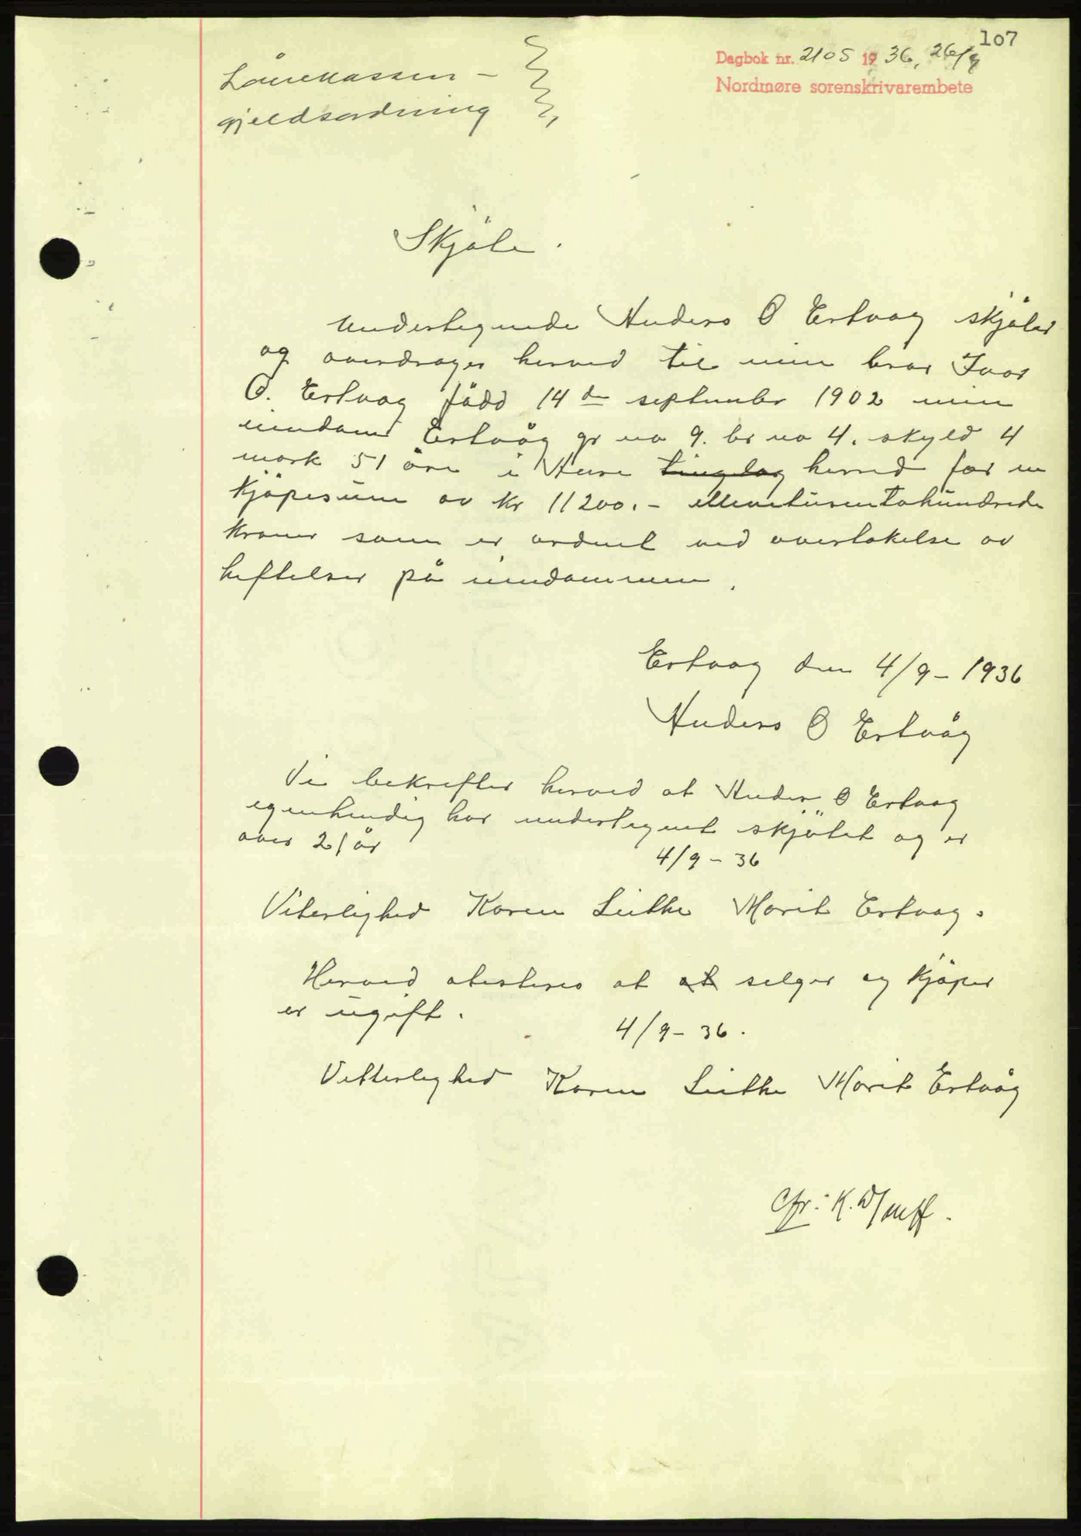 107
Dagbok nr. 2105 1936, 26/9
Nordmøre sorenskrivarembete
Lånekassen -
gjeldsordning
Skjöte.
Undertegnede Anders O Ertvaag skjöter
og overdrager herved til min bror Ivar
O. Ertvaag född 14 de september 1902 min
eiendom Ertvåg gr no 9. br no 4. skyld 4
mark 51 öre i Aure tinglag herred for en
kjöpesum av kr 11200.- ellevetusentohundrede
kroner som er ordnet ved overtakelse av
heftelser på eiendommen.
Ertvaag den 4/9 - 1936
Anders O Ertvåg
Vi bekrefter herved at Anders O Ertvaag
egenhendig har undertegnet skjötet og er
over 21 år
4/9 - 36
Viterlighed Karen Leithe Marit Ertvaag.
Herved atesteres at at selger og kjöper
er ugift.
4/9 - 36.
Vitterlighed Karen Leithe Marit Ertvåg
Cfr: K.